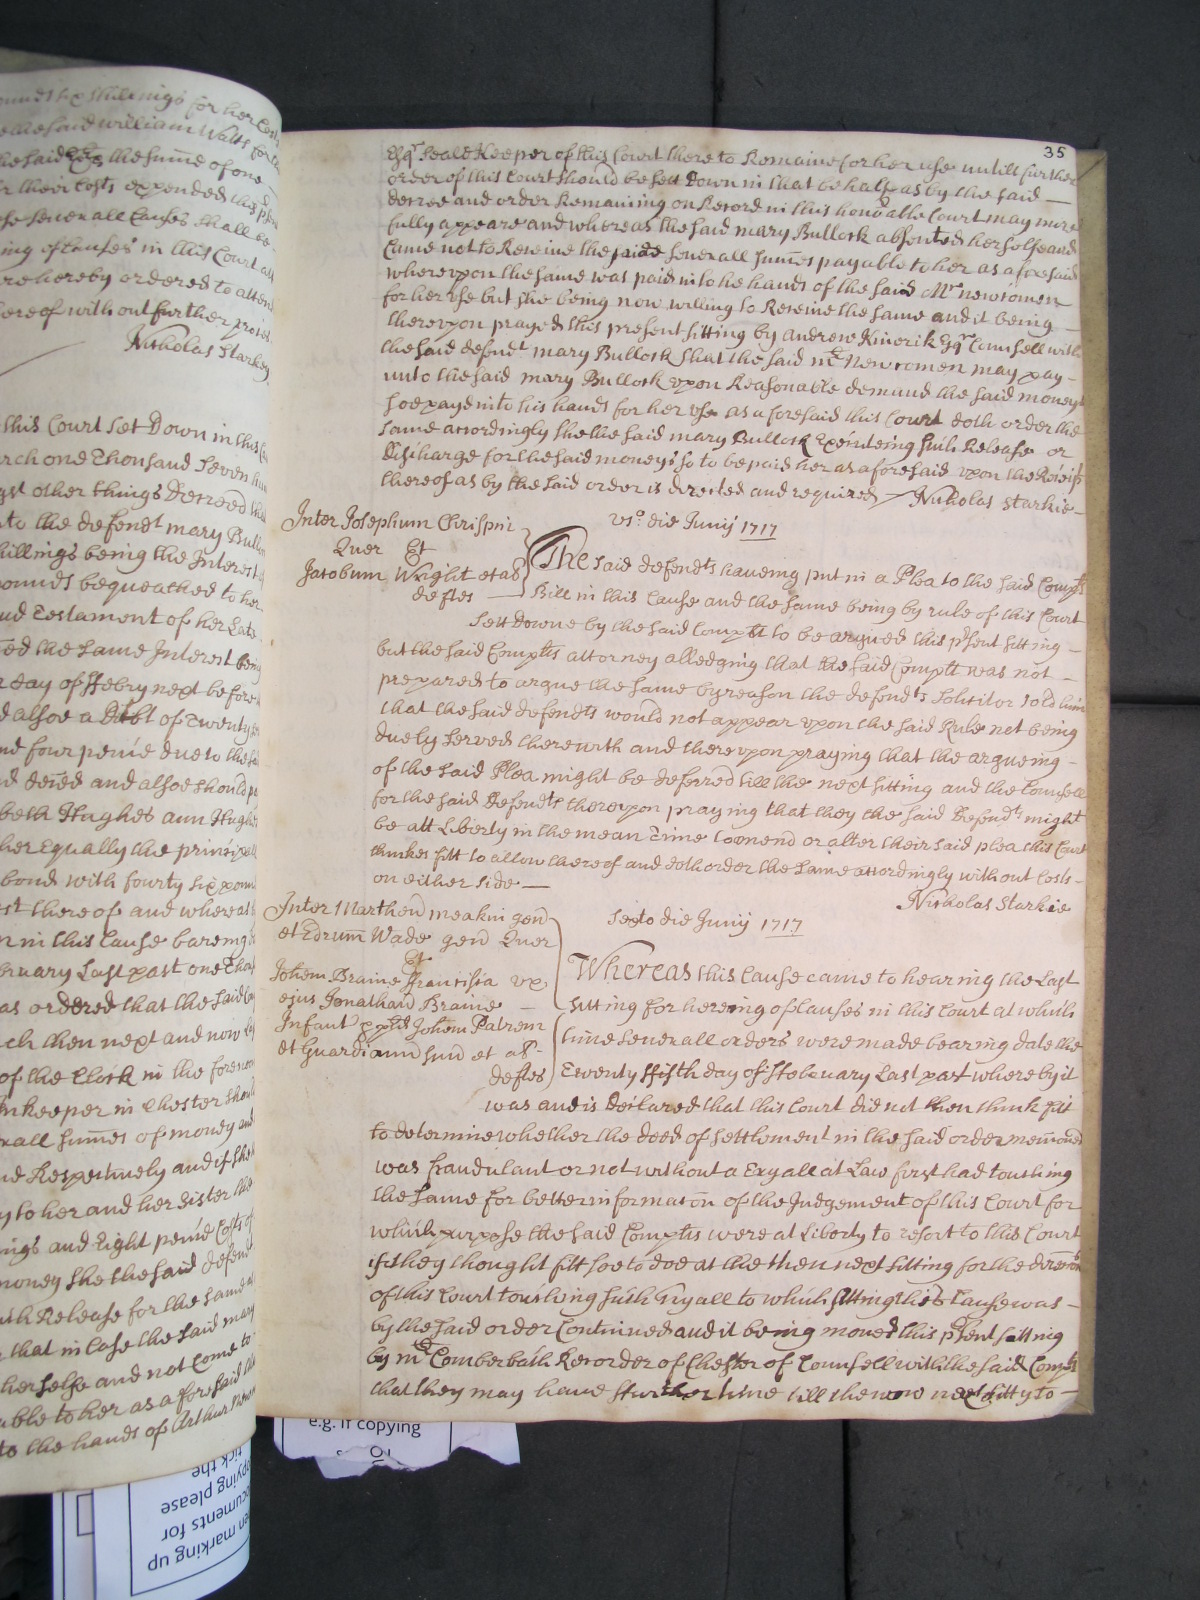 ounds six shillings for her Costs
the said William Watts for
the said the sume of one
r their Costs expended this
se severall Causes shall be
ing of Causes in this Court
re hereby ordered to attend
ereof without further process
Nicholas Starkey
this Court set Down in this
arch one Thousand Seven hun
gst other things Decreed that
to the defendt mary Bull
hillings being the Interest
ounds bequeathed to her
nd Testament of her Late
ed the same Interest being
day of ffebry next before
d alsoe a Debt of Twenty
nd four pence due to the
d deced and alsoe should
beth Hughes ann Hughes
her Equally the principall
bond with fourty six pounds
st thereof and whereas
n in this Cause bareing
bruary Last past one Thou
as ordered that the said
ch then next and now
of the Clock in the forenoon
Inkeeper in Chester should
rall sumes of money and
ne Respectively and if she
y to her and her sister the
ings and Eight pence Costs of
money she the said defend
uch Release for the same
that in Case the said mary
herselfe and not Come to
able to her as aforesaid
to the hands of Arthur
35
Esqr Seale Keeper of this Court there to Remaine for her use untill further
order of this Court should be sett Down in that behalf as by the said
decree and order Remaining on Record in this honoble Court may more
fully appeare and whereas the said mary Bullock absented herselfe and
Came not to Receive the said severall sumes payable to her as aforesaid
whereupon the same was paid into he hands of the said Mr newcomen
for her use but she being now willing to Receive the same and it being
thereupon prayed this present sitting by Andrew Kinerik Esqr Counsell with
the said defendt mary Bullock that the said mr Newcomen may pay
unto the said mary Bullock upon Reasonable demand the said moneys
soe payd into his hands for her use as aforesaid this Court doth order the
same accordingly she the said mary Bullock Executeing such Release or
discharge for the said moneys so to be paid her as aforesaid upon the Receipt
thereof as by the said order is directed and required Nicholas Starkie
Inter Josephum Crispin
Quer Et
Jacobum Wright et al
defles
vio die Junij 1717
The said defendts haveing put in a Plea to the said Complts
Bill in this Cause and the same being by rule of this Court
sett downe by the said Complt to be argued this psent sitting
but the said Complts attorney alledging that the said Complt was not
prepared to argue the same by reason the defendts Solicitor told him
that the said defendts would not appear upon the said Rule not being
duely served therewith and thereupon praying that the argueing
of the said Plea might be deferred till the next sitting and the Counsell
for the said Defendts thereupon praying that they the said Defendts might
be att Liberty in the mean Time to amend or alter their said plea this Court
thinkes fitt to allow thereof and doth order the same accordingly without Costs
on either side
Nicholas Starkie
Inter Marthen meakin gen
et Edrum Wade gen Quer
Et
Johem Braine Francisca ux
ejus Jonathan Braine
Infant p Johem Patrem
et Guardian suu et al
defles
Sexto die Junij 1717
Whereas this Cause came to hearing the Last
sitting for hereing of Causes in this Court at which
time severall orders were made bearing date the
Twenty ffifth day of ffebruary Last past whereby it
was and is Declared that this Court did not then think fitt
to determine whether the deed of settlement in the said order menconed
was fraudulant or not without a Tryall at Law first had touching
the same for better informacon of the Judgement of this Court for
which purpose the said Complts were at Liberty to resort to this Court
if they thought fitt soe to doe at the then next sitting for the direccon
of this Court touching such Tryall to which sitting this Cause was
by the said order Continued and it being moved this psent sitting
by mr Comberbach Recorder of Chester of Counsell with the said Complts
that they may have further time till the now next sitty to
e.g. if copying
tick the
opying please
ocuments for
en marking up